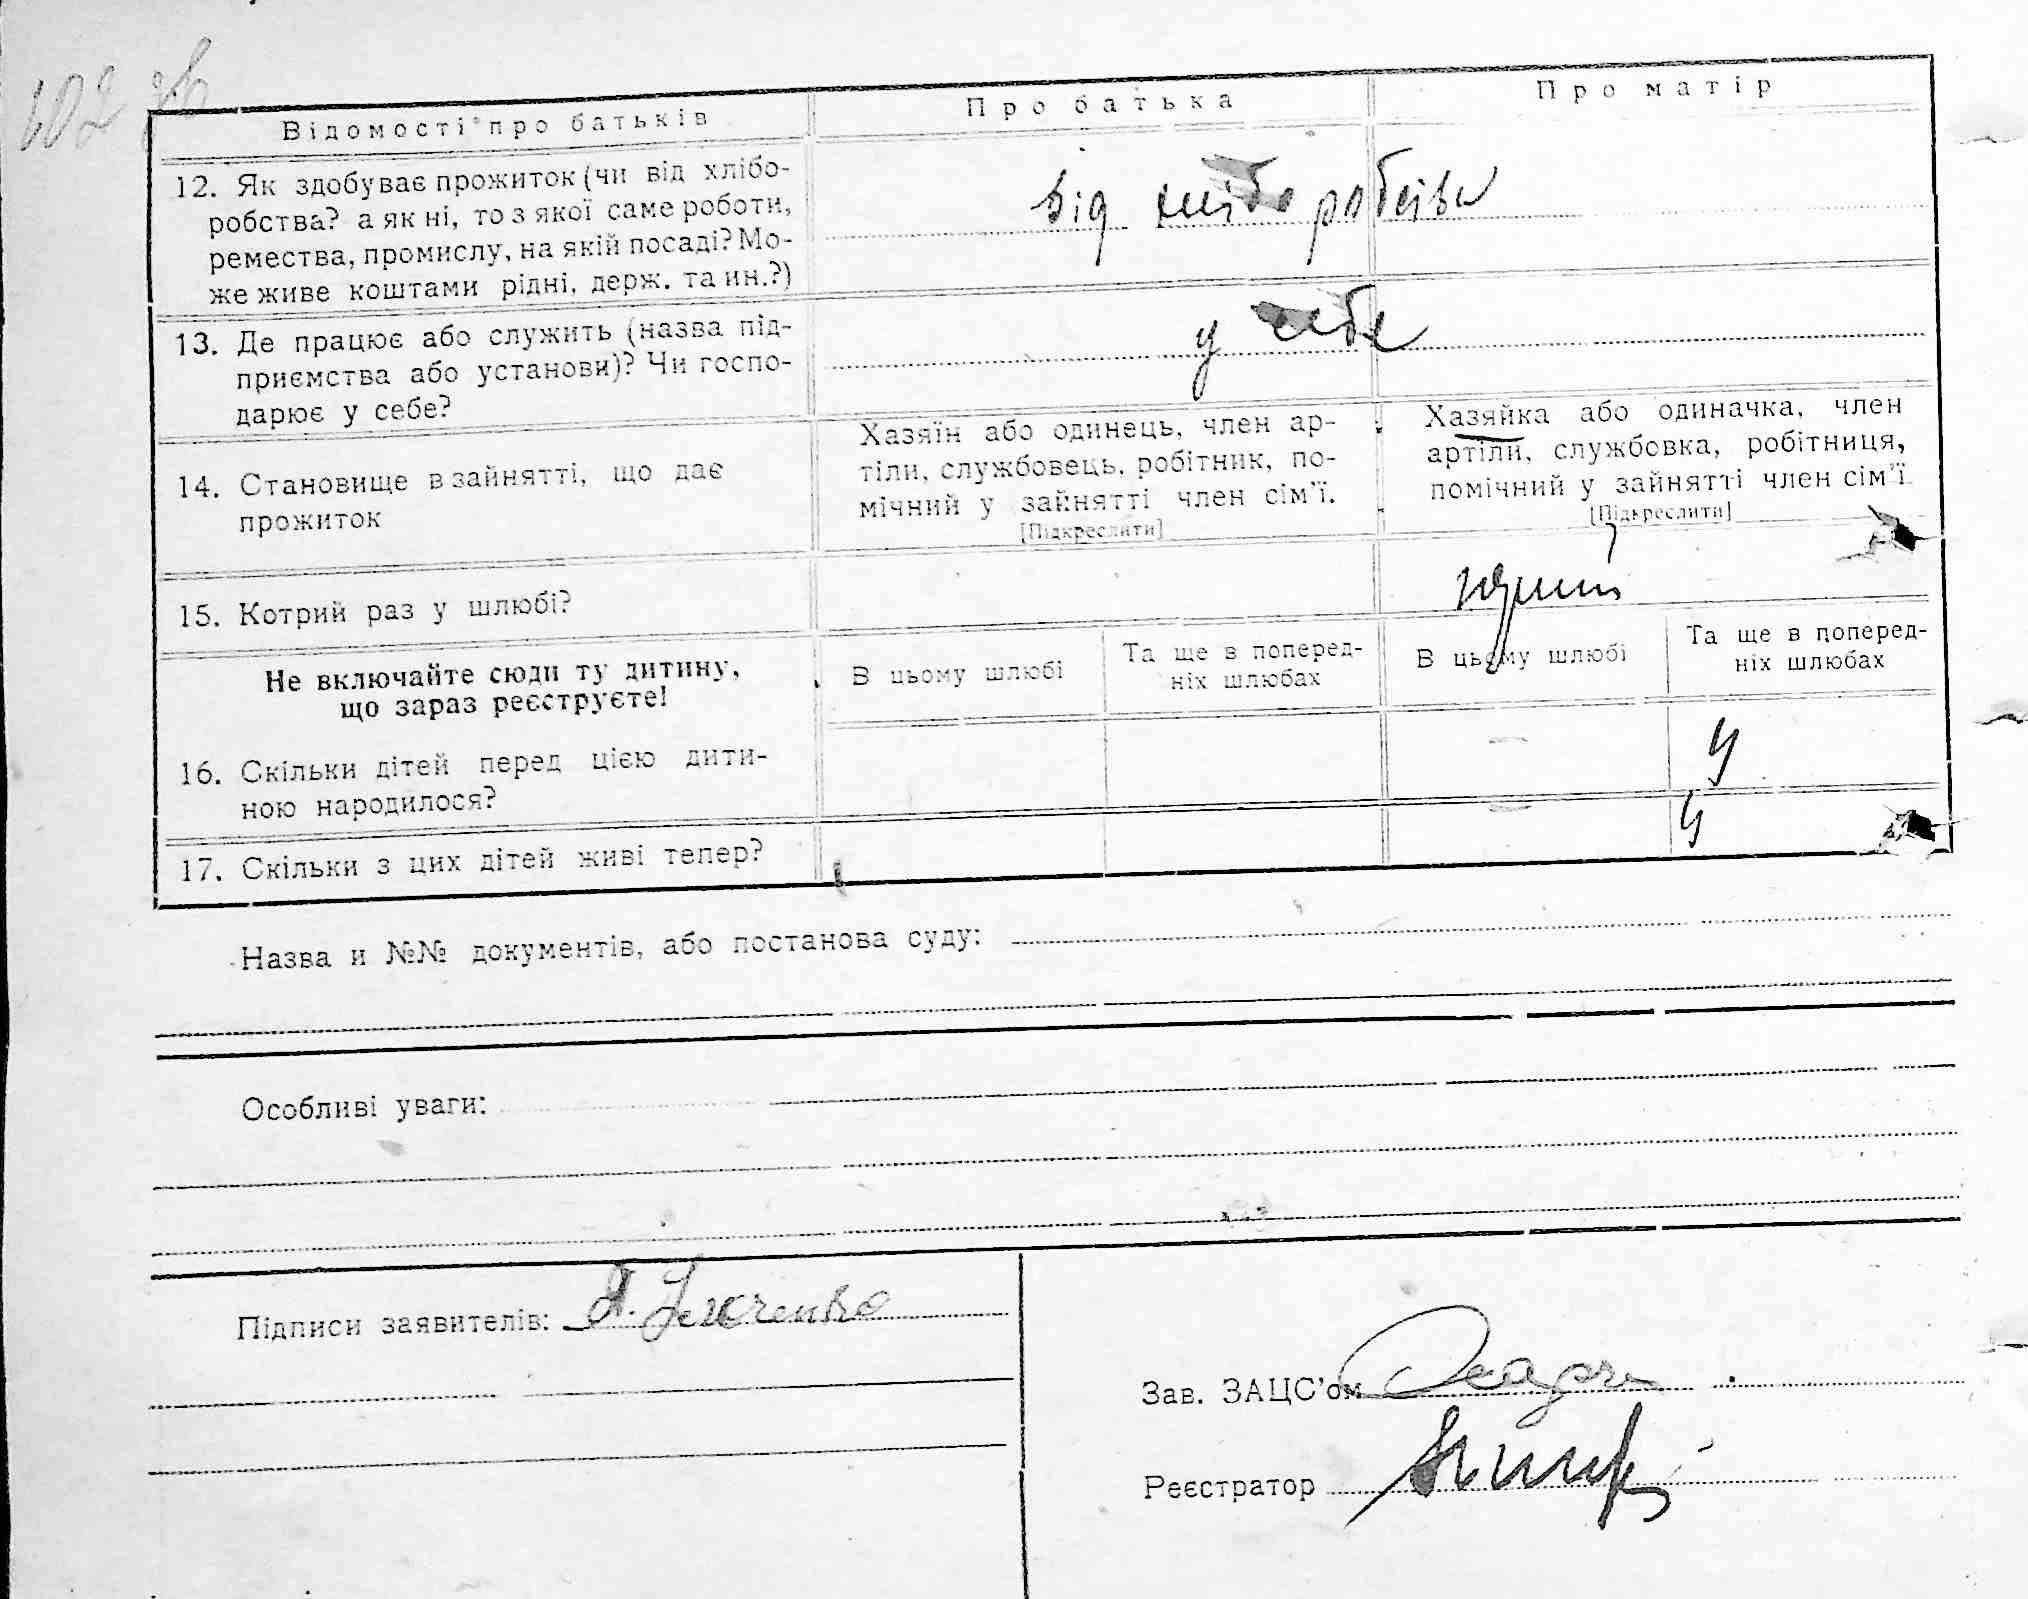 102 зв
Відомості про батьків Про батька Про матір
12. Як здобуває прожиток (чи від хлібо-
робства? а як ні, то з якої саме роботи,
ремества, промислу, на якій посаді? Мо-
же живе коштами рідні, держ. та ин.?)
від хліборобства
13. Де працює або служить (назва під-
приємства або установи)? Чи госпо-
дарює у себе?
у себе
14. Становище в зайнятті, що дає
прожиток
Хазяїн або одинець, член ар-
тіли, службовець, робітник, по-
мічний у зайнятті член сім'ї.
[Підкреслити]
Хазяйка або одиначка, член
артіли, службовка, робітниця,
помічний у зайнятті член сім'ї
[Підкреслити]
15. Котрий раз у шлюбі?
Не включайте сюди ту дитину,
що зараз реєструєте!
В цьому шлюбі
Та ще в поперед-
ніх шлюбах
В цьому шлюбі
Та ще в поперед-
ніх шлюбах
16. Скільки дітей перед цією дити-
ною народилося?
— 4
17. Скільки з цих дітей живі тепер?
— 4
Назва и №№ документів, або постанова суду:
Особливі уваги:
Підписи заявителів:
Зав. ЗАЦС'ом
Реєстратор